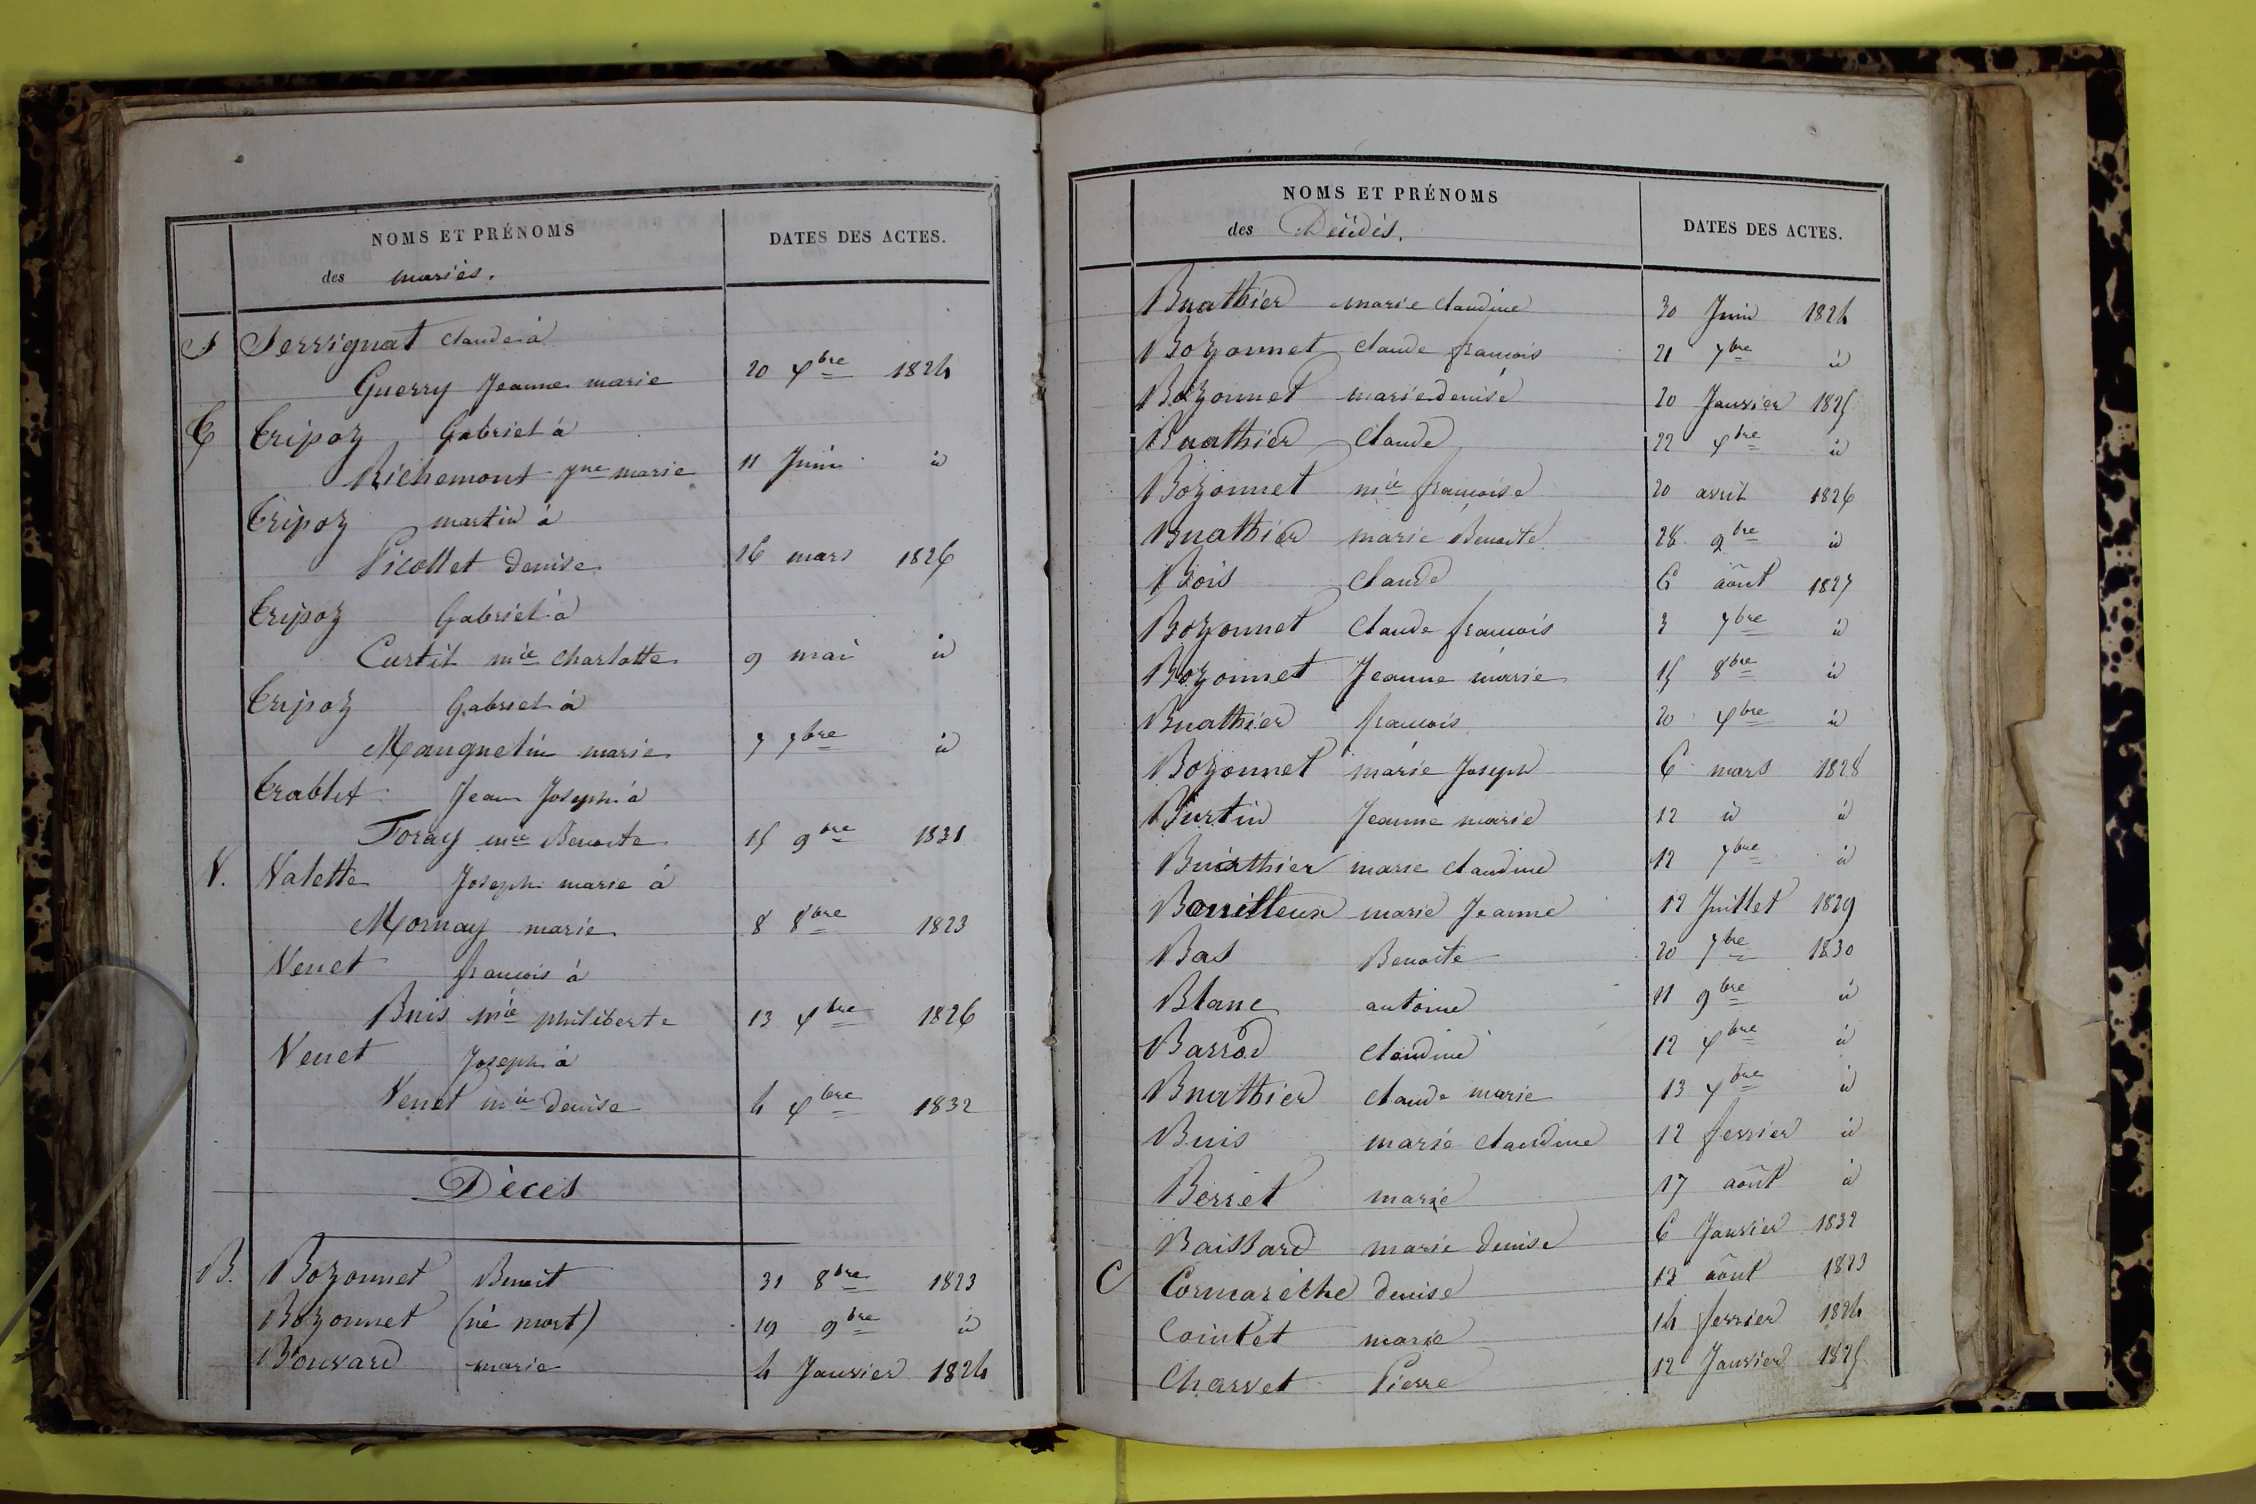 NOMS ET PRÉNOMS
des mariés.
DATES DES ACTES.
S Serrignat Claude à
Guerry Jeanne marie 20 Xbre 1824
T Tripoz Gabriel à
Richemont Jne marie 11 Juin id
Tripoz martin à
Picollet Denise 16 mars 1826
Tripoz Gabriel à
Curtil mie Charlotte 9 mai id
Tripoz Gabriel à
Mauguelin marie 7 7bre id
Trablet Jean Joseph à
Foray mie Benoite 15 9bre 1831
V. Valette Joseph marie à
Mornay marie 8 8bre 1823
Venet francois à
Buis mie philiberte 13 Xbre 1826
Venet Joseph à
Venet mie denise 4 Xbre 1832
Décès
B. Bozonnet Benoit 31 8bre 1823
Bozonnet (né mort) 19 9bre id
Bouvard marie 4 Janvier 1824
NOMS ET PRÉNOMS
des Décédés.
DATES DES ACTES.
Buathier marie claudine 30 Juin 1824
Bozonnet claude francois 21 7bre id
Bozonnet marie denise 20 Janvier 1825
Buathier Claude 22 Xbre id
Bozonnet mie francoise 20 avril 1826
Buathier marie Benoite 28 9bre id
Bois Claude 6 août 1827
Bozonnet Claude francois 3 7bre id
Bozonnet Jeanne marie 15 8bre id
Buathier francois 20 Xbre id
Bozonnet marie Joseph 6 mars 1828
Burtin Jeanne marie 12 id id
Buathier marie claudine 12 7bre id
Bouilleux marie Jeanne 12 Juillet 1829
Bas Benoite 20 7bre 1830
Blanc antoine 11 9bre id
Barrod Claudine 12 Xbre id
Buathier claude marie 13 Xbre id
Buis marie claudine 12 fevrier id
Berret marie 17 août id
Baissard marie denise 6 Janvier 1832
C Cormarèche denise 13 août 1823
Cointet marie 14 fevrier 1824
Charvet Pierre 12 Janvier 1825